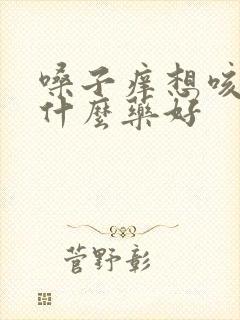 嗓子痒想咳
什麼藥好
菅野彰